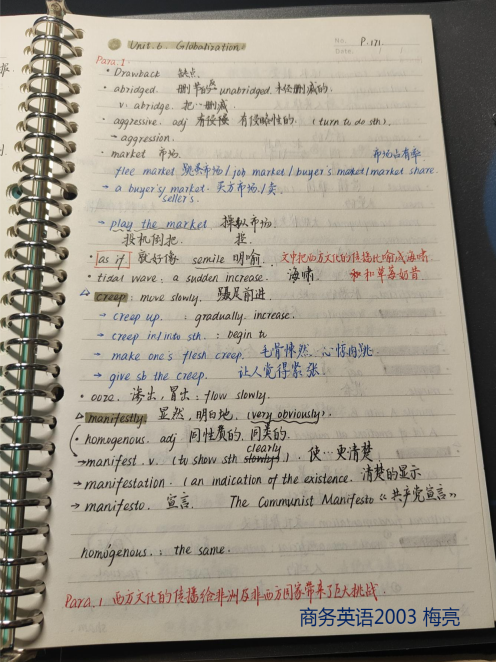 Unit.6. Globalization
No.
P.171
Date.
Para.1
• Drawback 缺点.
• abridged. 删节的 unabridged. 未经删减的.
v. abridge. 把…删减.
• aggressive. adj 有侵略性的. (turn to do sth).
→ aggression.
• market 市场. 市场占有率
flee market 跳蚤市场/job market/buyer's market/market share.
→ a buyer's market. 买方市场/卖.
seller's.
→ play the market 操纵市场
投机倒把.
• as if 就好像 semile 明喻. 文中把西方文化的传播比喻成海啸.
• tidal wave: a sudden increase. 海啸. 草莓奶昔
creep: move slowly. 蹑足前进.
→ creep up. : gradually. increase.
→ creep in/into sth. : begin to
→ make one's flesh creep. 毛骨悚然, 心惊肉跳.
→ give sb the creep. 让人觉得紧张.
• ooze. 渗出, 冒出: flow slowly.
manifestly 显然, 明白地. (very obviously).
• homogenous. adj 同性质的. 同类的.
clearly
→ manifest. v. (to show sth slowly). 使…更清楚
→ manifestation. (an indication of the existence. 清楚的显示
→ manifesto. 宣言. The Communist Manifesto 《共产党宣言》
homógenous. : the same.
Para.1 西方文化的传播给非洲及非西方国家带来了巨大挑战.
商务英语2003 梅亮